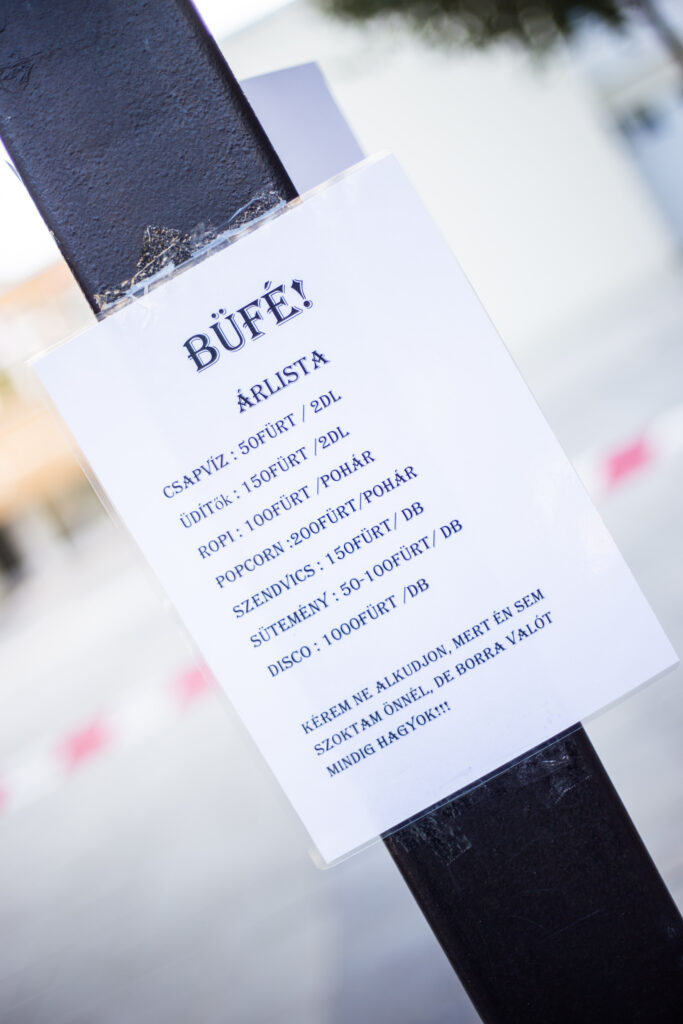 BÜFÉ!
ÁRLISTA
CSAPVÍZ : 50FÜRT / 2DL
ÜDÍTŐK : 150FÜRT /2DL
ROPI : 100FÜRT /POHÁR
POPCORN :200FÜRT/POHÁR
SZENDVICS : 150FÜRT/ DB
SÜTEMÉNY : 50-100FÜRT/ DB
DISCO : 1000FÜRT /DB
KÉREM NE ALKUDJON, MERT ÉN SEM
SZOKTAM ÖNNÉL, DE BORRA VALÓT
MINDIG HAGYOK!!!